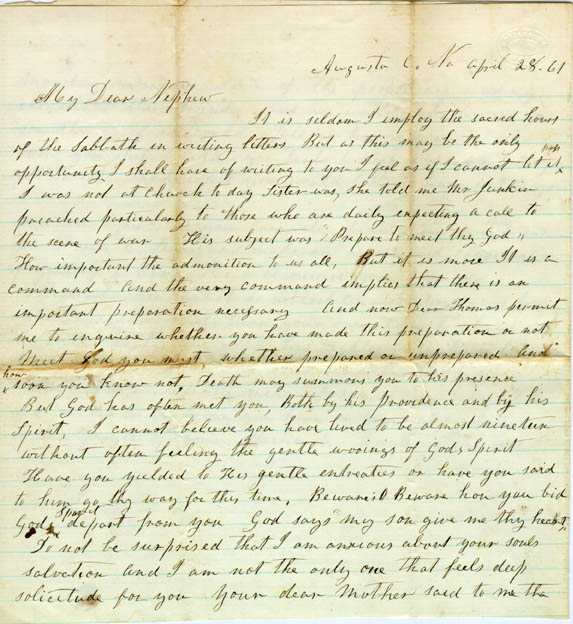 Augusta C. Va April 28. 61
My Dear Nephew
It is seldom I employ the sacred hours
of the Sabbath in writing letters But as this may be the only
opportunity I shall have of writing to you I feel as if I cannot let it pass
I was not at church to day Sister was, she told me Mr Junkin
preached particularly to those who are daily expecting a call to
the scene of war His subject was "Prepare to meet thy God"
How important the admonition to us all, But it is more It is a
command And the very command implies that there is an
important preparation necessary And now Dear Thomas permit
me to enquire whether you have made this preparation or not
Meet God you must, whether prepared or unprepared And
how soon you know not, Death may summons you to his presence
But God has often met you, Both by his Providence and by his
Spirit, I cannot believe you have lived to be almost nineteen
without often feeling the gentle wooings of Gods Spirit
Have you yielded to His gentle entreaties or have you said
to him go thy way for this time, Beware O Beware how you bid
Gods Spirit depart from you God says "my son give me thy heart,"
Do not be surprised that I am anxious about your souls
salvation And I am not the only one that feels deep
solicitude for you Your dear Mother said to me the